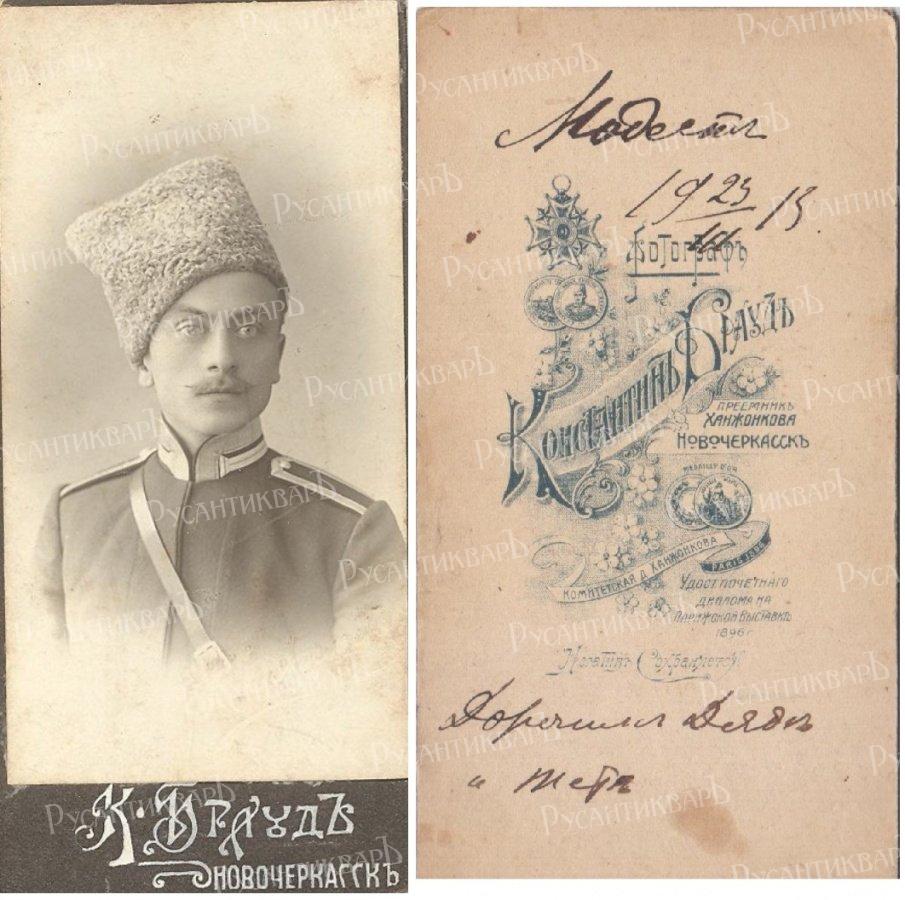 К. Браудъ
Новочеркасскъ
Модестъ
19 23/III 13
Фотографъ
Константинъ Браудъ
Преемникъ
Ханжонкова
Новочеркасскъ
Комитетская д. Ханжонкова
PARIS 1896
Удост. почетнаго
диплома на
Парижской выставкѣ
1896 г.
Негативъ сохраняется
Дядѣ
и тетѣ
РусАнтикваръ